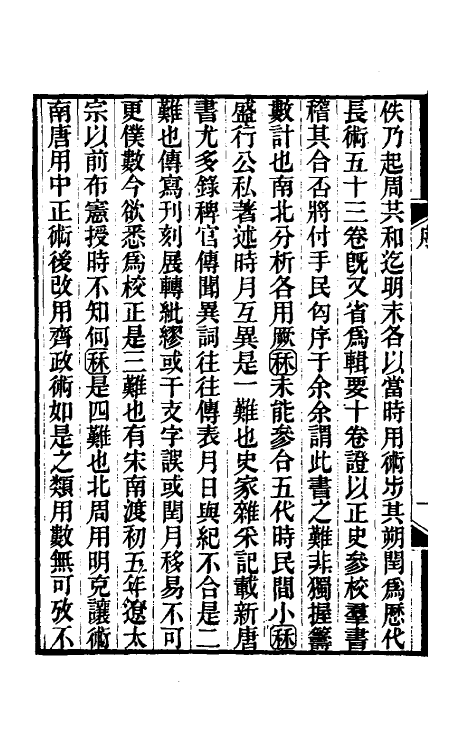 佚乃起周共和迄明末各以當時用術步其朔閏爲歷代
長術五十三卷旣又省爲輯要十卷證以正史參校羣書
稽其合否將付手民匃序于余余謂此書之難非獨握籌
數計也南北分析各用厥秝未能參合五代時民間小秝
盛行公私著述時月互異是一難也史家雜釆記載新唐
書尤多錄稗官傳聞異詞往往傳表月日與紀不合是二
難也傳寫刊刻展轉紕繆或干支字誤或閏月移易不可
更僕數今欲悉爲校正是三難也有宋南渡初五年遼太
宗以前布憲授時不知何秝是四難也北周用明克讓術
南唐用中正術後改用齊政術如是之類用數無可攷不